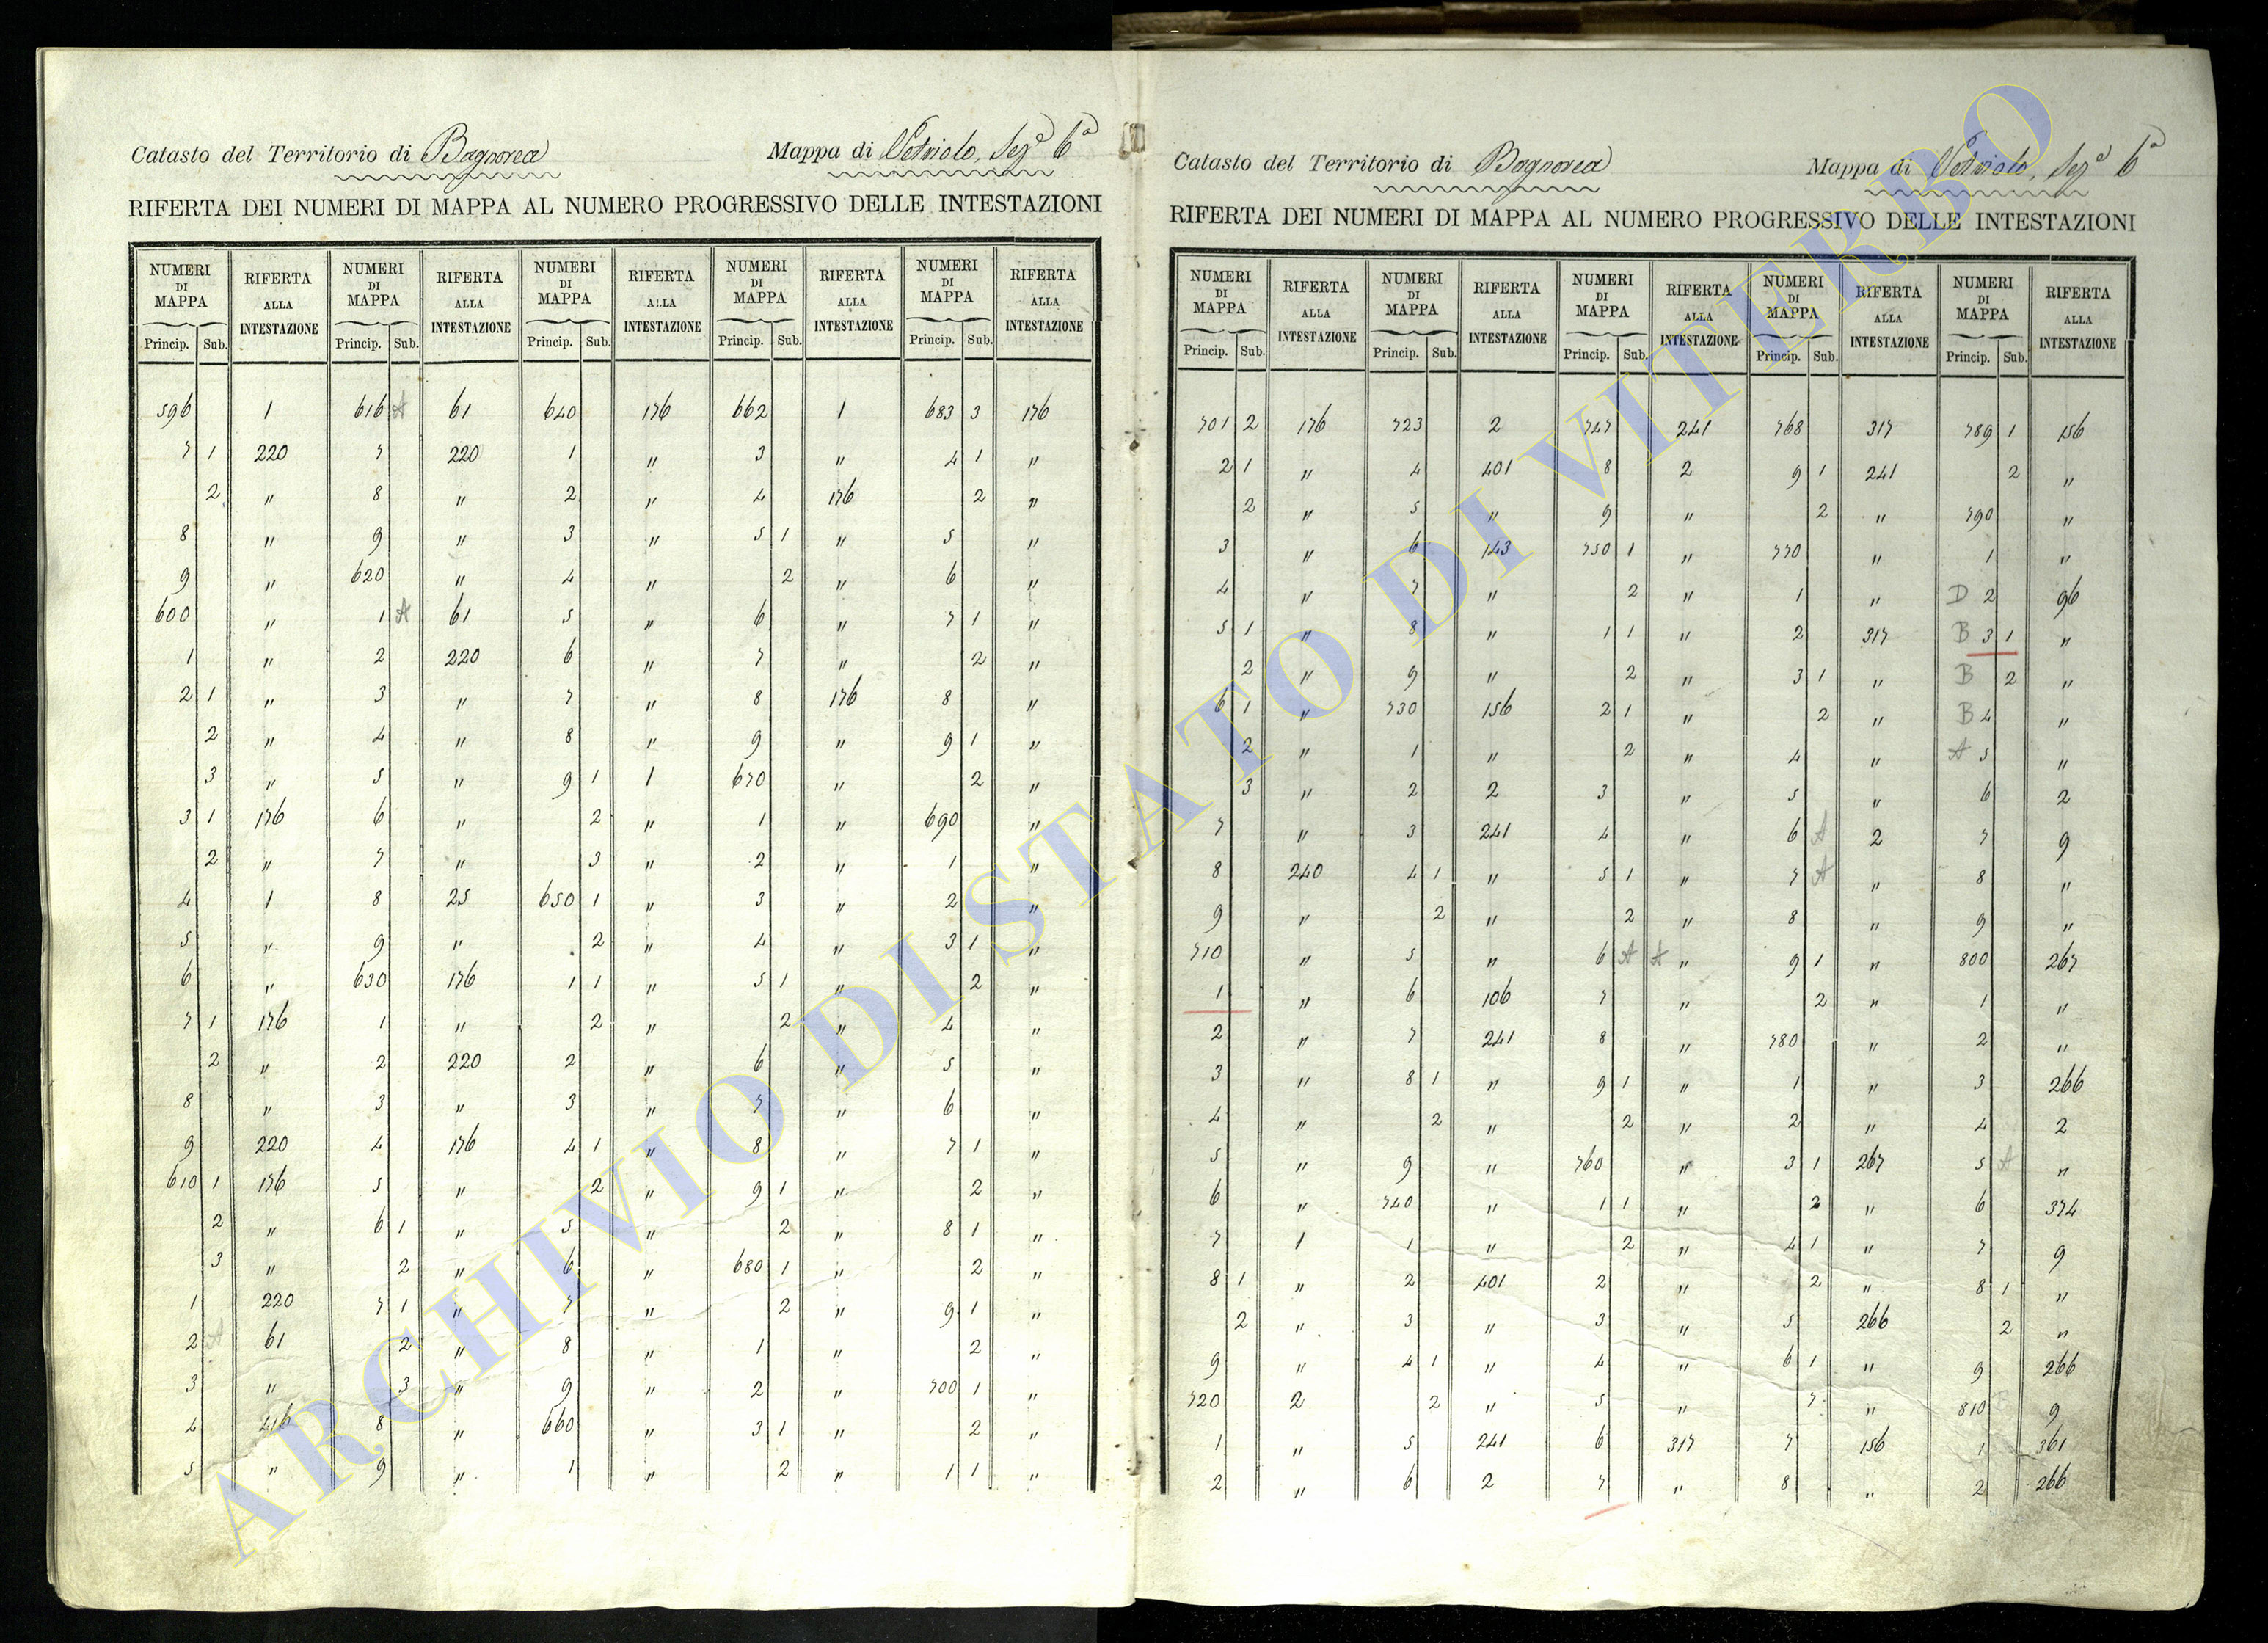 Catasto del Territorio di Bagnorea Mappa di Vetriolo, Sezᵉ 6ᵃ
RIFERTA DEI NUMERI DI MAPPA AL NUMERO PROGRESSIVO DELLE INTESTAZIONI
NUMERI DI MAPPA RIFERTA ALLA INTESTAZIONE NUMERI DI MAPPA RIFERTA ALLA INTESTAZIONE NUMERI DI MAPPA RIFERTA ALLA INTESTAZIONE NUMERI DI MAPPA RIFERTA ALLA INTESTAZIONE NUMERI DI MAPPA RIFERTA ALLA INTESTAZIONE
Princip. Sub. Princip. Sub. Princip. Sub. Princip. Sub. Princip. Sub.
596 1 616 A 61 640 176 662 1 683 3 176
7 1 220 7 220 1 " 3 " 4 1 "
2 " 8 " 2 " 4 176 2 "
8 " 9 " 3 " 5 1 " 5 "
9 " 620 " 4 " 2 " 6 "
600 " 1 A 61 5 " 6 " 7 1 "
1 " 2 220 6 " 7 " 2 "
2 1 " 3 " 7 " 8 176 8 "
2 " 4 " 8 " 9 " 9 1 "
3 " 5 " 9 1 1 670 " 2 "
3 1 176 6 " 2 " 1 " 690 "
2 " 7 " 3 " 2 " 1 "
4 1 8 25 650 1 " 3 " 2 "
5 " 9 " 2 " 4 " 3 1 "
6 " 630 176 1 1 " 5 1 " 2 "
7 1 176 1 " 2 " 2 " 4 "
2 " 2 220 2 " 6 " 5 "
8 " 3 " 3 " 7 " 6 "
9 220 4 176 4 1 " 8 " 7 1 "
610 1 176 5 " 2 " 9 1 " 2 "
2 " 6 1 " 5 " 2 " 8 1 "
3 " 2 " 6 " 680 1 " 2 "
1 220 7 1 " 7 " 2 " 9 1 "
2 A 61 2 " 8 " 1 " 2 "
3 " 3 " 9 " 2 " 700 1 "
4 216 8 " 660 " 3 1 " 2 "
5 " 9 " 1 " 2 " 1 1 "
Catasto del Territorio di Bagnorea Mappa di Vetriolo, Sezᵉ 6ᵃ
RIFERTA DEI NUMERI DI MAPPA AL NUMERO PROGRESSIVO DELLE INTESTAZIONI
NUMERI DI MAPPA RIFERTA ALLA INTESTAZIONE NUMERI DI MAPPA RIFERTA ALLA INTESTAZIONE NUMERI DI MAPPA RIFERTA ALLA INTESTAZIONE NUMERI DI MAPPA RIFERTA ALLA INTESTAZIONE NUMERI DI MAPPA RIFERTA ALLA INTESTAZIONE
Princip. Sub. Princip. Sub. Princip. Sub. Princip. Sub. Princip. Sub.
701 2 176 723 2 747 241 768 317 789 1 156
2 1 " 4 401 8 2 9 1 241 2 "
2 " 5 " 9 " 2 " 790 "
3 " 6 143 750 1 " 770 " 1 "
4 " 7 " 2 " 1 " D 2 96
5 1 " 8 " 1 1 " 2 317 B 3 1 "
2 " 9 " 2 " 3 1 " B 2 "
6 1 " 730 156 2 1 " 2 " B 4 "
2 " 1 " 2 " 4 " A 5 "
3 " 2 2 3 " 5 " 6 2
7 " 3 241 4 " 6 A 2 7 9
8 240 4 1 " 5 1 " 7 A " 8 "
9 " 2 " 2 " 8 " 9 "
710 " 5 " 6 A A " 9 1 " 800 267
1 " 6 106 7 " 2 " 1 "
2 " 7 241 8 " 780 " 2 "
3 " 8 1 " 9 1 " 1 " 3 266
4 " 2 " 2 " 2 " 4 2
5 " 9 " 760 " 3 1 267 5 A "
6 " 740 " 1 1 " 2 " 6 374
7 1 1 " 2 " 4 1 " 7 9
8 1 " 2 401 2 " 2 " 8 1 "
2 " 3 " 3 " 5 266 2 "
9 " 4 1 " 4 " 6 1 " 9 266
720 2 2 " 5 " 7 " 810 9
1 " 5 241 6 317 7 156 1 361
2 " 6 2 7 " 8 " 2 266
ARCHIVIO DI STATO DI VITERBO